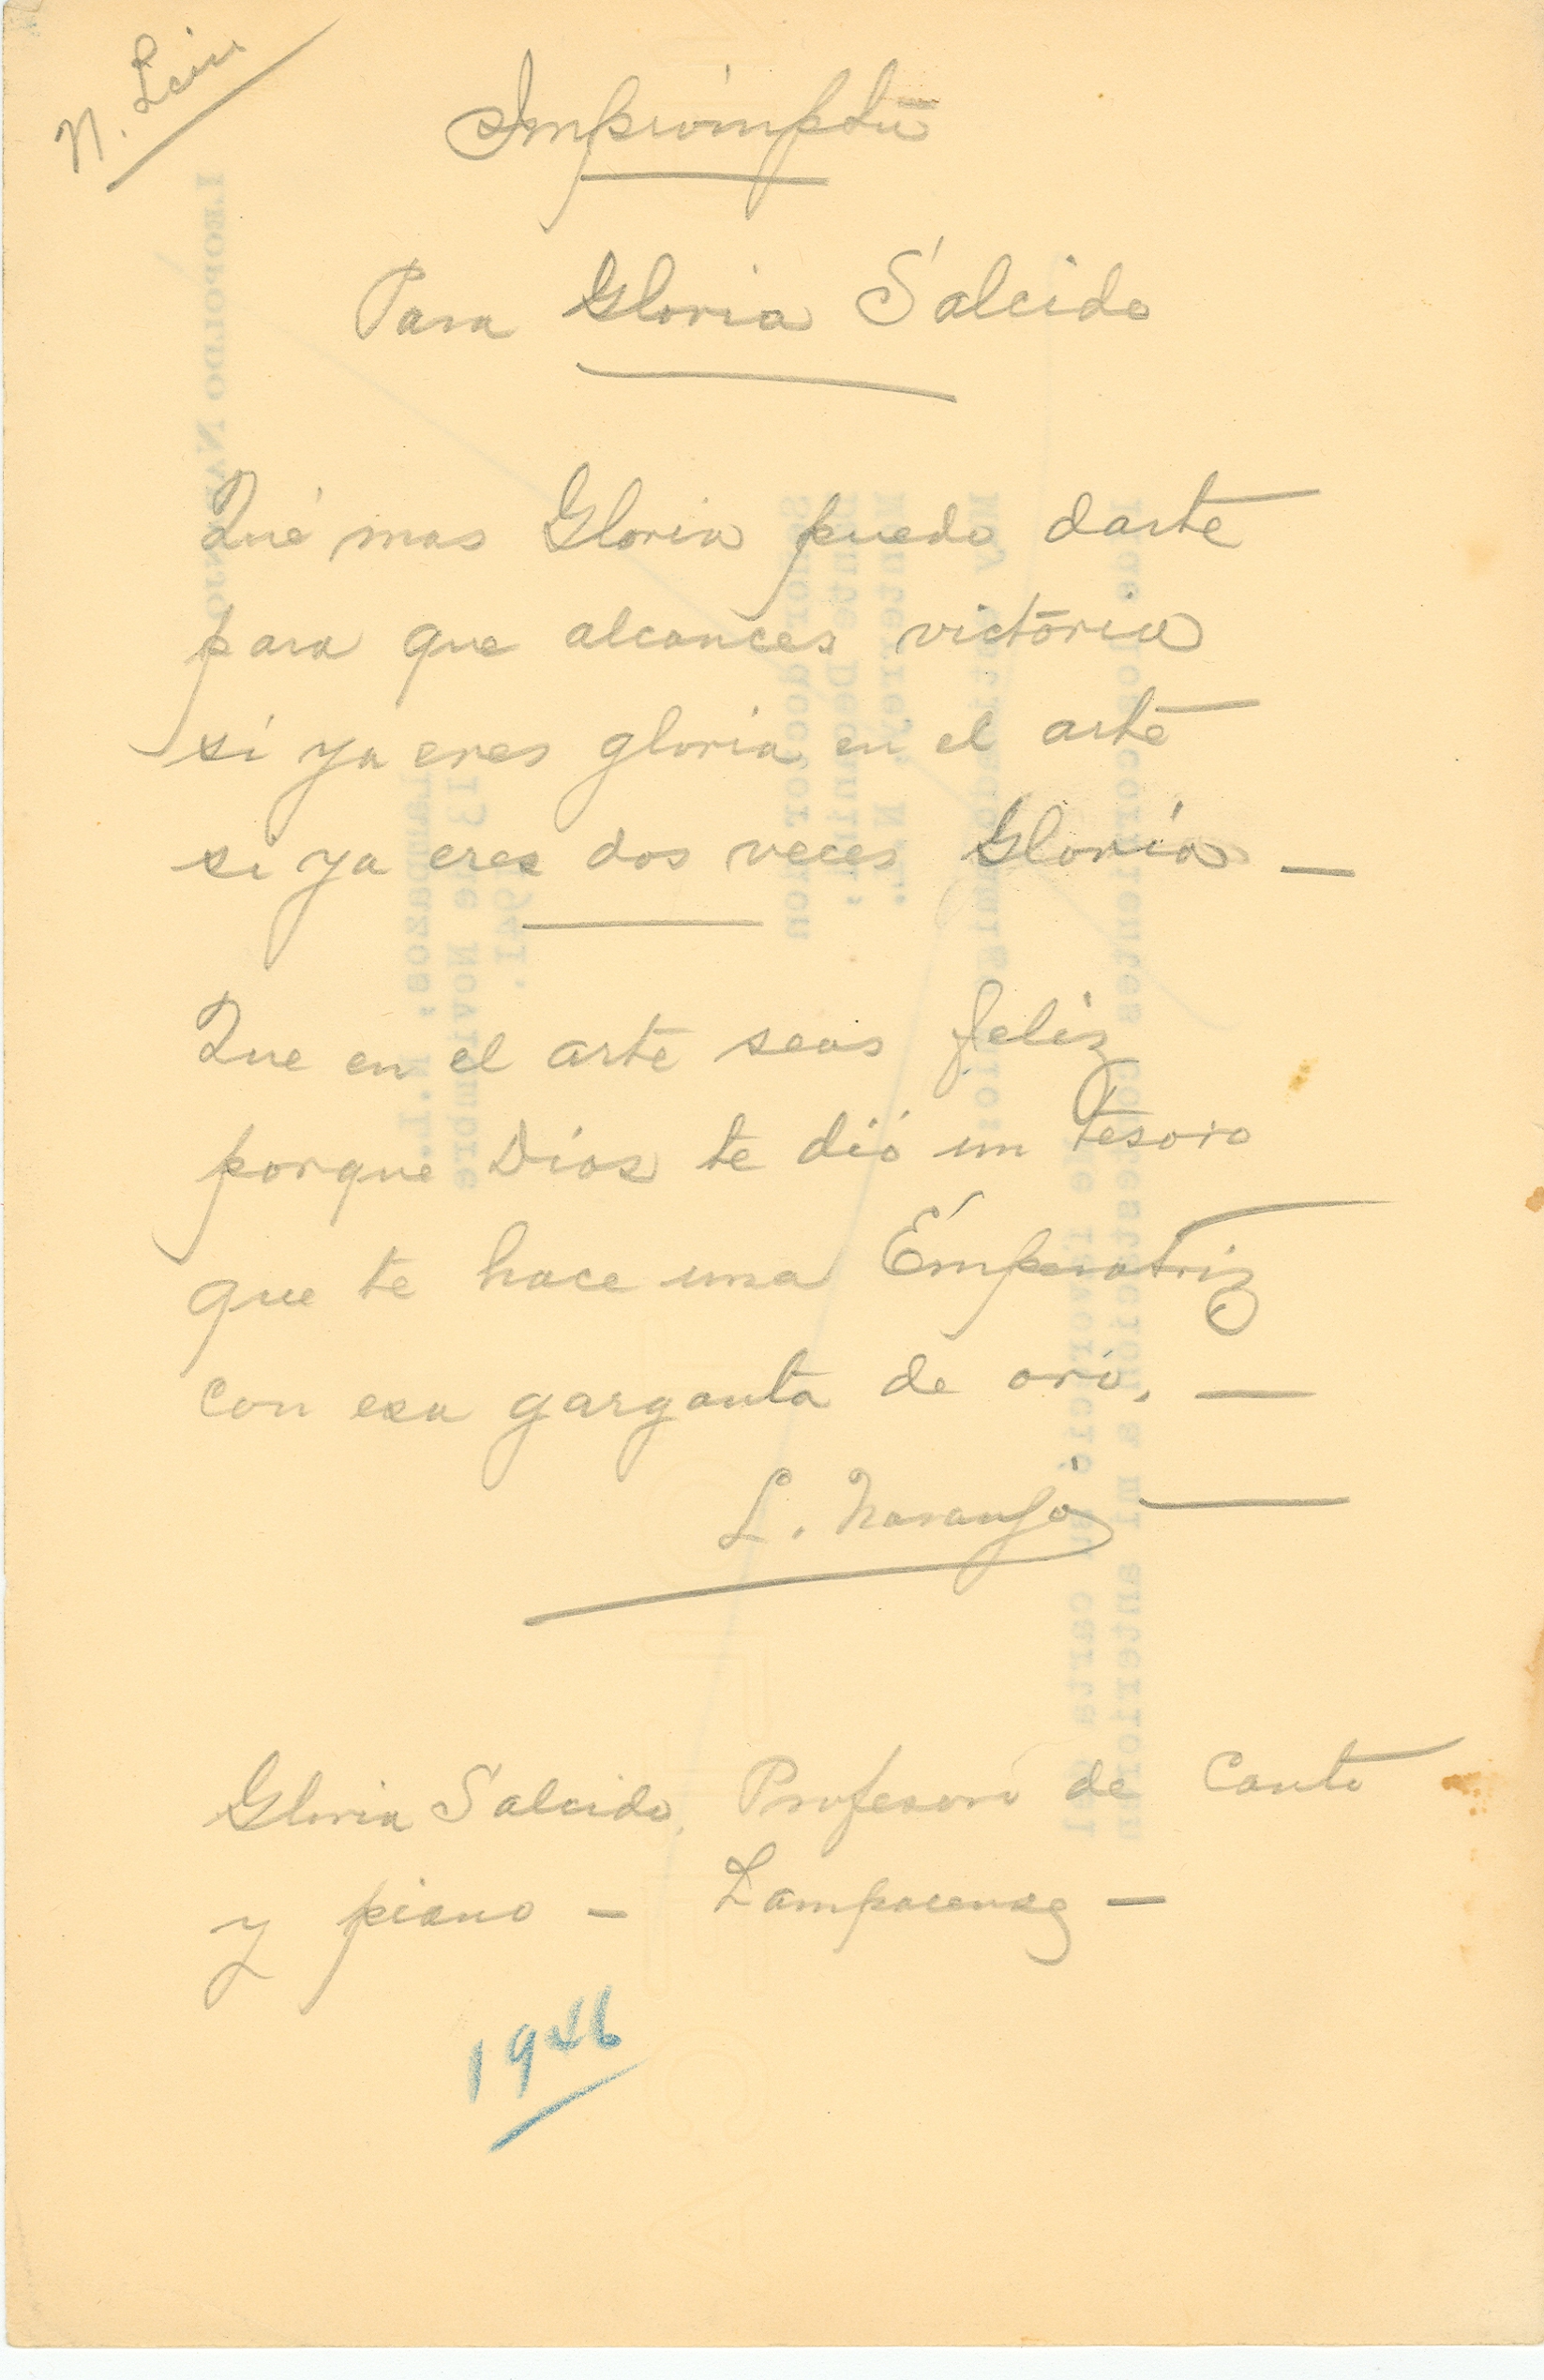 N. León
Impromptu
Para Gloria Salcido
Qué mas Gloria puedo darte
para que alcances victoria
si ya eres gloria en el arte
si ya eres dos veces Gloria —
Que en el arte seas feliz
porque Dios te dió un tesoro
que te hace una Emperatriz
con esa garganta de oro. —
L. Naranjo —
Gloria Salcido, Profesora de Canto
y piano — Lampacense —
1946
LEOPOLDO NARANJO
Lampazos, N.L.
13 de Noviembre
1941.
Señor doctor don
Monterrey, N.L.